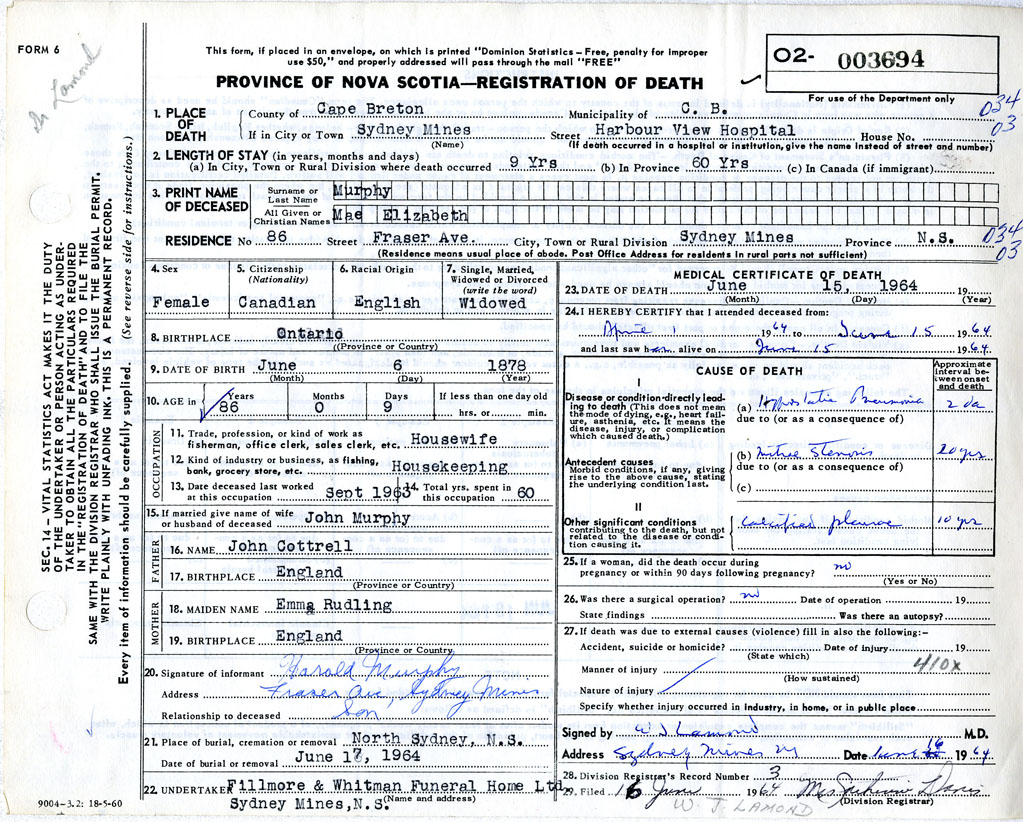 FORM 6
Dr Lamond
This form, if placed in an envelope, on which is printed "Dominion Statistics—Free, penalty for improper
use $50," and properly addressed will pass through the mail "FREE"
PROVINCE OF NOVA SCOTIA—REGISTRATION OF DEATH
02- 003694
For use of the Department only
034
03
1. PLACE OF DEATH
County of Cape Breton Municipality of C. B.
If in City or Town Sydney Mines Street Harbour View Hospital House No.
(Name) (If death occurred in a hospital or institution, give the name instead of street and number)
2. LENGTH OF STAY (in years, months and days)
(a) In City, Town or Rural Division where death occurred 9 Yrs (b) In Province 60 Yrs (c) In Canada (if immigrant)
3. PRINT NAME OF DECEASED
Surname or Last Name Murphy
All Given or Christian Names Mae Elizabeth
RESIDENCE No 86 Street Fraser Ave. City, Town or Rural Division Sydney Mines Province N.S.
034
03
(Residence means usual place of abode. Post Office Address for residents in rural parts not sufficient)
4. Sex
Female
5. Citizenship
(Nationality)
Canadian
6. Racial Origin
English
7. Single, Married, Widowed or Divorced
(write the word)
Widowed
8. BIRTHPLACE Ontario
(Province or Country)
9. DATE OF BIRTH June 6 1878
(Month) (Day) (Year)
10. AGE in Years 86 Months 0 Days 9 If less than one day old
hrs. or min.
OCCUPATION
11. Trade, profession, or kind of work as
fisherman, office clerk, sales clerk, etc. Housewife
12. Kind of industry or business, as fishing,
bank, grocery store, etc. Housekeeping
13. Date deceased last worked
at this occupation Sept 1963
14. Total yrs. spent in
this occupation 60
15. If married give name of wife
or husband of deceased John Murphy
FATHER
16. NAME John Cottrell
17. BIRTHPLACE England
(Province or Country)
MOTHER
18. MAIDEN NAME Emma Rudling
19. BIRTHPLACE England
(Province or Country)
20. Signature of informant Harold Murphy
Address Fraser Ave, Sydney Mines
Relationship to deceased Son
21. Place of burial, cremation or removal North Sydney, N.S.
Date of burial or removal June 17, 1964
22. UNDERTAKER Fillmore & Whitman Funeral Home Ltd.
Sydney Mines, N.S. (Name and address)
MEDICAL CERTIFICATE OF DEATH
23. DATE OF DEATH June 15, 1964
(Month) (Day) (Year)
24. I HEREBY CERTIFY that I attended deceased from:
April 1 1964 to June 15 1964
and last saw h alive on June 15 1964
CAUSE OF DEATH
Approximate interval between onset and death
I
Disease or condition-directly leading to death (This does not mean the mode of dying, e.g., heart failure, asthenia, etc. It means the disease, injury, or complication which caused death.)
(a) Hypostatic Pneumonia 2 da
due to (or as a consequence of)
Antecedent causes
Morbid conditions, if any, giving rise to the above cause, stating the underlying condition last.
(b) Mitral Stenosis 20 yrs
due to (or as a consequence of)
(c)
II
Other significant conditions
contributing to the death, but not related to the disease or condition causing it.
Calcified pleurae 10 yrs
25. If a woman, did the death occur during
pregnancy or within 90 days following pregnancy? no
(Yes or No)
26. Was there a surgical operation? no Date of operation 19
State findings Was there an autopsy?
27. If death was due to external causes (violence) fill in also the following:-
Accident, suicide or homicide? Date of injury 19
(State which)
410x
Manner of injury
(How sustained)
Nature of injury
Specify whether injury occurred in industry, in home, or in public place
Signed by W J Lamond M.D.
Address Sydney Mines Date June 16 1964
28. Division Registrar's Record Number 3
29. Filed 16 June 1964 Mrs Davis
(Division Registrar)
W. J. LAMOND
SEC. 14 – VITAL STATISTICS ACT MAKES IT THE DUTY
OF THE UNDERTAKER OR PERSON ACTING AS UNDER-
TAKER TO OBTAIN ALL THE PARTICULARS REQUIRED
IN THE "REGISTRATION OF DEATH" AND TO FILE THE
SAME WITH THE DIVISION REGISTRAR WHO SHALL ISSUE THE BURIAL PERMIT.
WRITE PLAINLY WITH UNFADING INK. THIS IS A PERMANENT RECORD.
Every item of information should be carefully supplied. (See reverse side for instructions.)
9004–3.2: 18-5-60